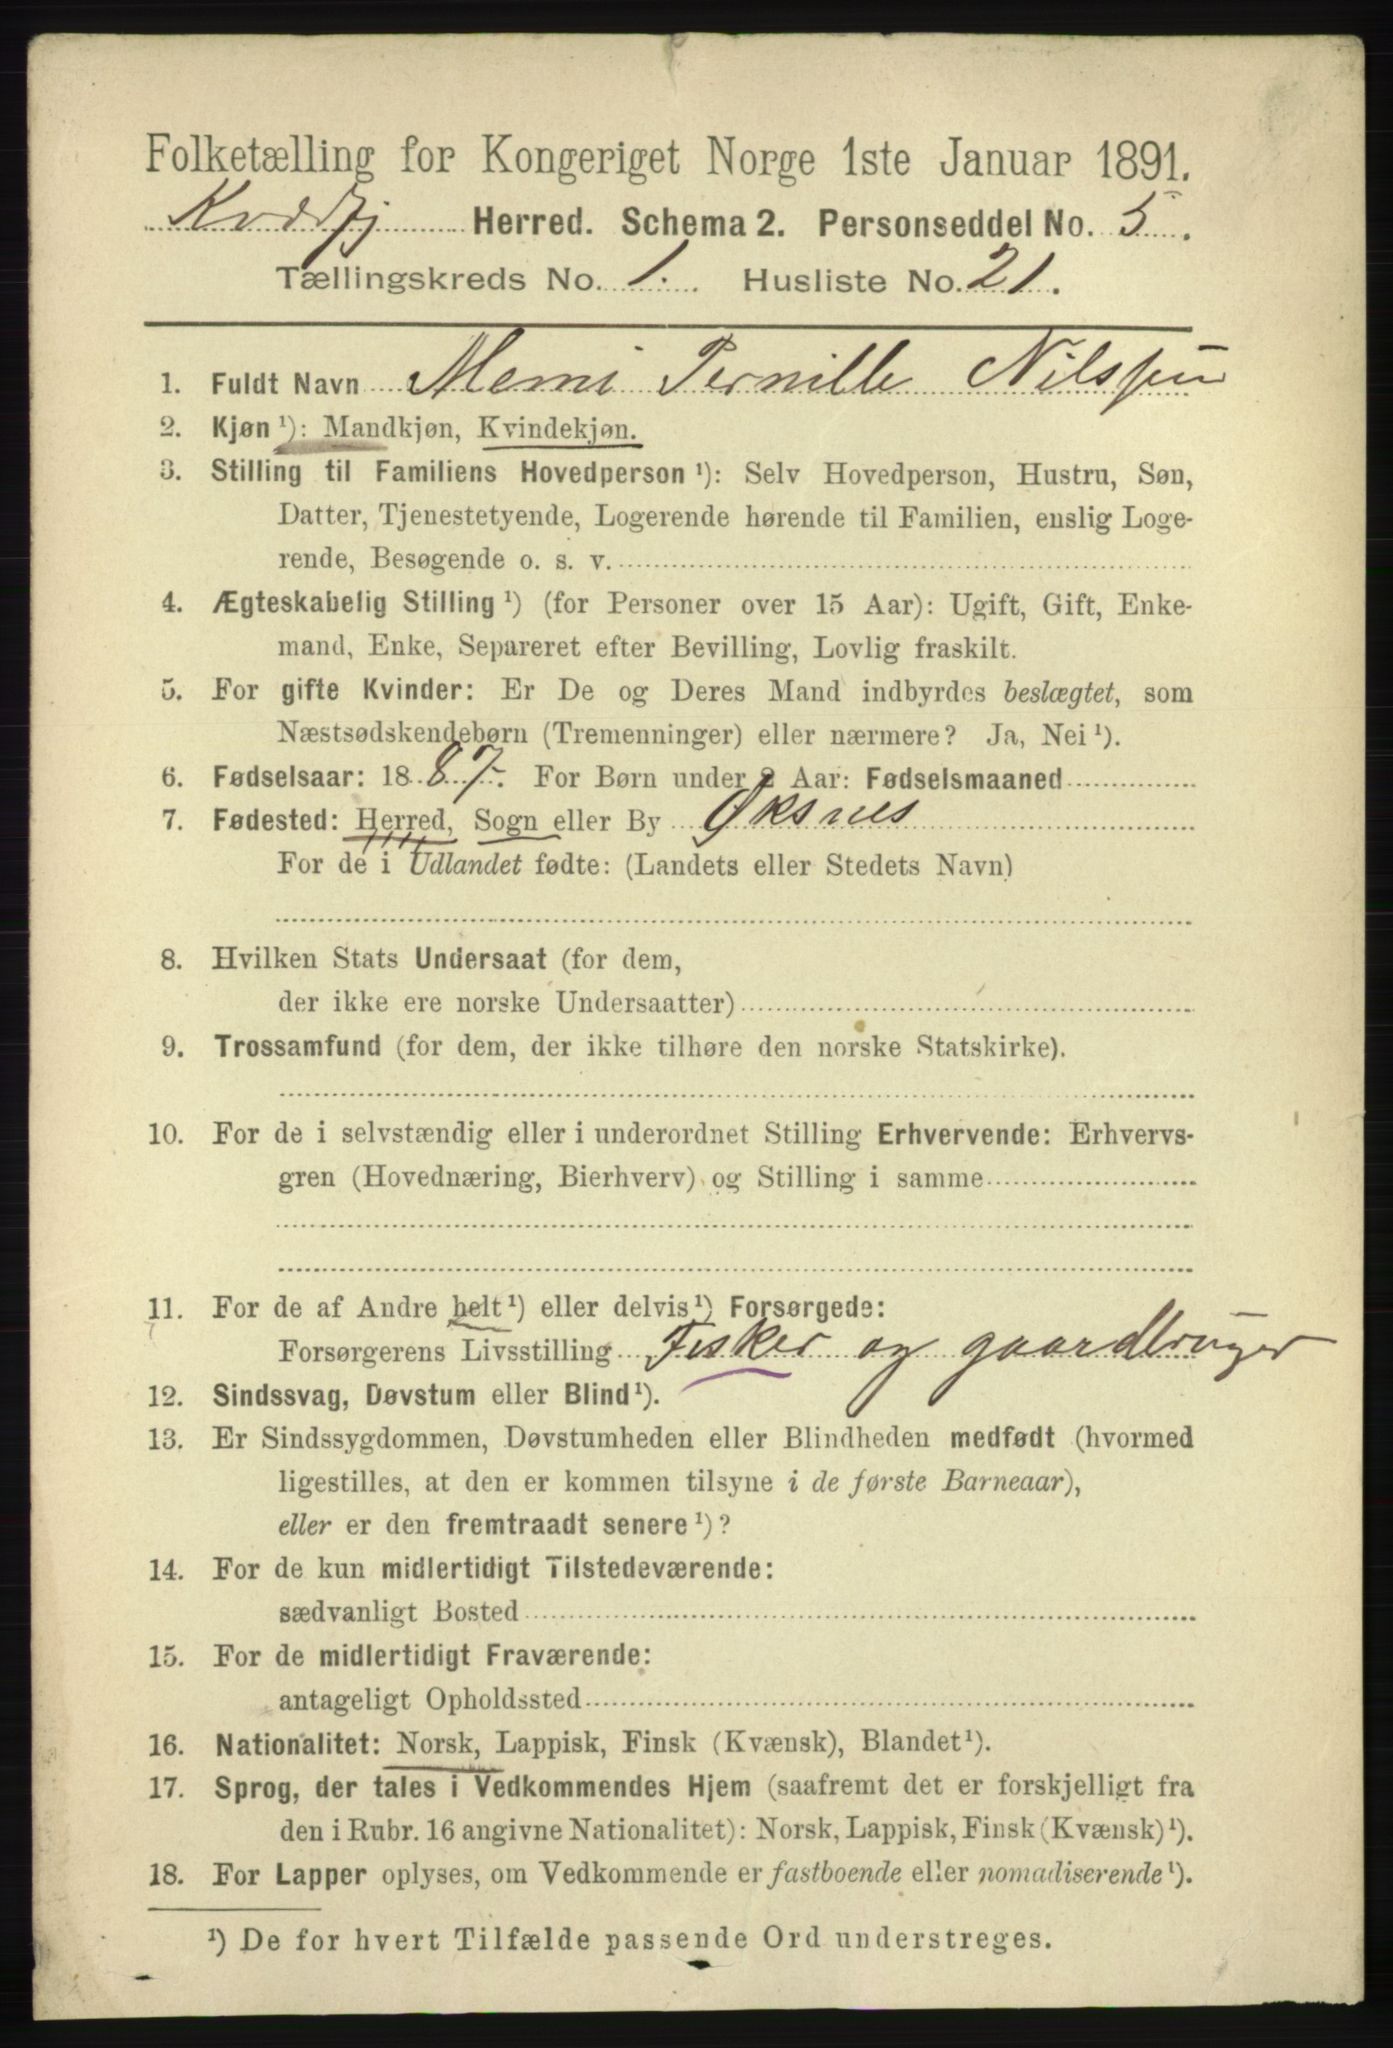 Folketælling for Kongeriget Norge 1ste Januar 1891.
Kvædfj Herred. Schema 2. Personseddel No. 5.
Tællingskreds No. 1. Husliste No. 21.
1. Fuldt Navn Memi Pernille Nilssen
2. Kjøn ¹): Mandkjøn, Kvindekjøn.
3. Stilling til Familiens Hovedperson ¹): Selv Hovedperson, Hustru, Søn,
Datter, Tjenestetyende, Logerende hørende til Familien, enslig Loge-
rende, Besøgende o. s. v.
4. Ægteskabelig Stilling ¹) (for Personer over 15 Aar): Ugift, Gift, Enke-
mand, Enke, Separeret efter Bevilling, Lovlig fraskilt.
5. For gifte Kvinder: Er De og Deres Mand indbyrdes beslægtet, som
Næstsødskendebørn (Tremenninger) eller nærmere? Ja, Nei ¹).
6. Fødselsaar: 1887. For Børn under 2 Aar: Fødselsmaaned
7. Fødested: Herred, Sogn eller By Øksnes
For de i Udlandet fødte: (Landets eller Stedets Navn)
8. Hvilken Stats Undersaat (for dem,
der ikke ere norske Undersaatter)
9. Trossamfund (for dem, der ikke tilhøre den norske Statskirke).
10. For de i selvstændig eller i underordnet Stilling Erhvervende: Erhvervs-
gren (Hovednæring, Bierhverv) og Stilling i samme
11. For de af Andre helt ¹) eller delvis ¹) Forsørgede:
Forsørgerens Livsstilling Fisker og gaardbruger
12. Sindssvag, Døvstum eller Blind ¹).
13. Er Sindssygdommen, Døvstumheden eller Blindheden medfødt (hvormed
ligestilles, at den er kommen tilsyne i de første Barneaar),
eller er den fremtraadt senere ¹)?
14. For de kun midlertidigt Tilstedeværende:
sædvanligt Bosted
15. For de midlertidigt Fraværende:
antageligt Opholdssted
16. Nationalitet: Norsk, Lappisk, Finsk (Kvænsk), Blandet ¹).
17. Sprog, der tales i Vedkommendes Hjem (saafremt det er forskjelligt fra
den i Rubr. 16 angivne Nationalitet): Norsk, Lappisk, Finsk (Kvænsk) ¹).
18. For Lapper oplyses, om Vedkommende er fastboende eller nomadiserende ¹).
¹) De for hvert Tilfælde passende Ord understreges.